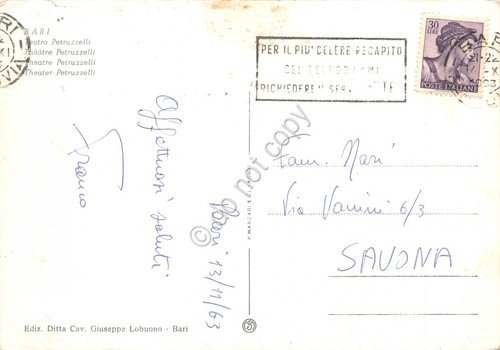 BARI
Teatro Petruzzelli
Théâtre Petruzzelli
Theatre Petruzzelli
Theater Petruzzelli
PER IL PIU' CELERE RECAPITO
DEI TELEGRAMMI
RICHIEDERE N SER
30
LIRE
POSTE ITALIANE
Affettuosi saluti
Franco
Bari 13/11/63
Fam. Marì
Via Vanini 6/3
SAVONA
do not copy
Ediz. Ditta Cav. Giuseppe Lobuono - Bari